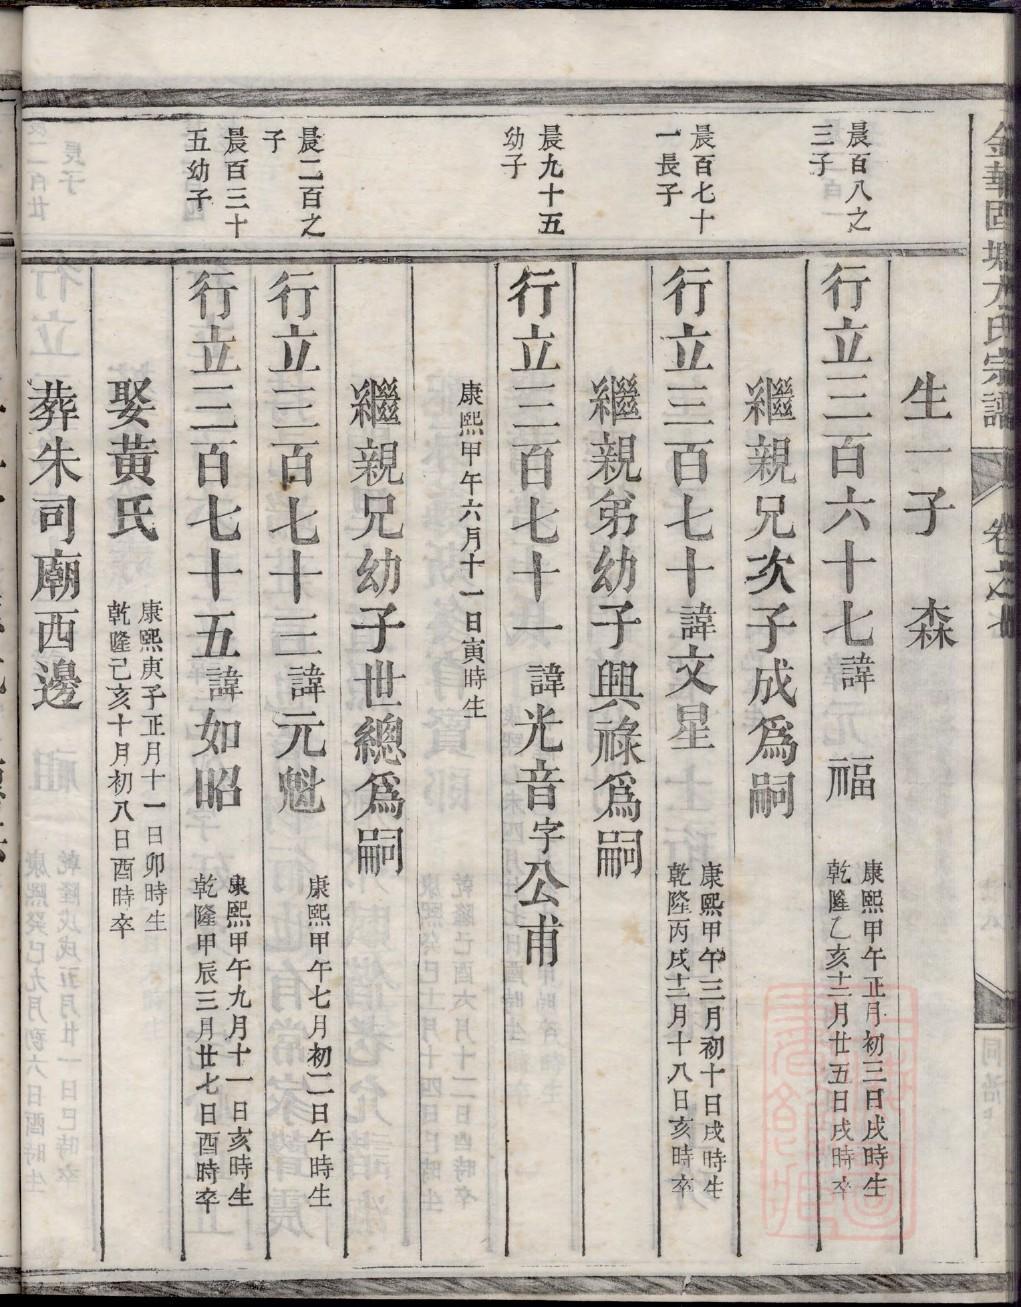 金華西塘方氏宗譜
卷之
生一子 森
晨百八之
三子
行立三百六十七諱 福
康熙甲午正月初三日戌時生
乾隆乙亥十二月廿五日戌時卒
繼親兄次子成爲嗣
晨百七十
一長子
行立三百七十諱文星
康熙甲午三月初十日戌時生
乾隆丙戌十二月十八日亥時卒
繼親弟幼子興祿爲嗣
晨九十五
幼子
行立三百七十一諱光音字公甫
康熙甲午六月十一日寅時生
繼親兄幼子世總爲嗣
晨二百之
子
行立三百七十三諱元魁
康熙甲午七月初二日午時生
晨百三十
五幼子
行立三百七十五諱如昭
康熙甲午九月十一日亥時生
乾隆甲辰三月廿七日酉時卒
娶黃氏
康熙庚子正月十一日卯時生
乾隆己亥十月初八日酉時卒
葬朱司廟西邊